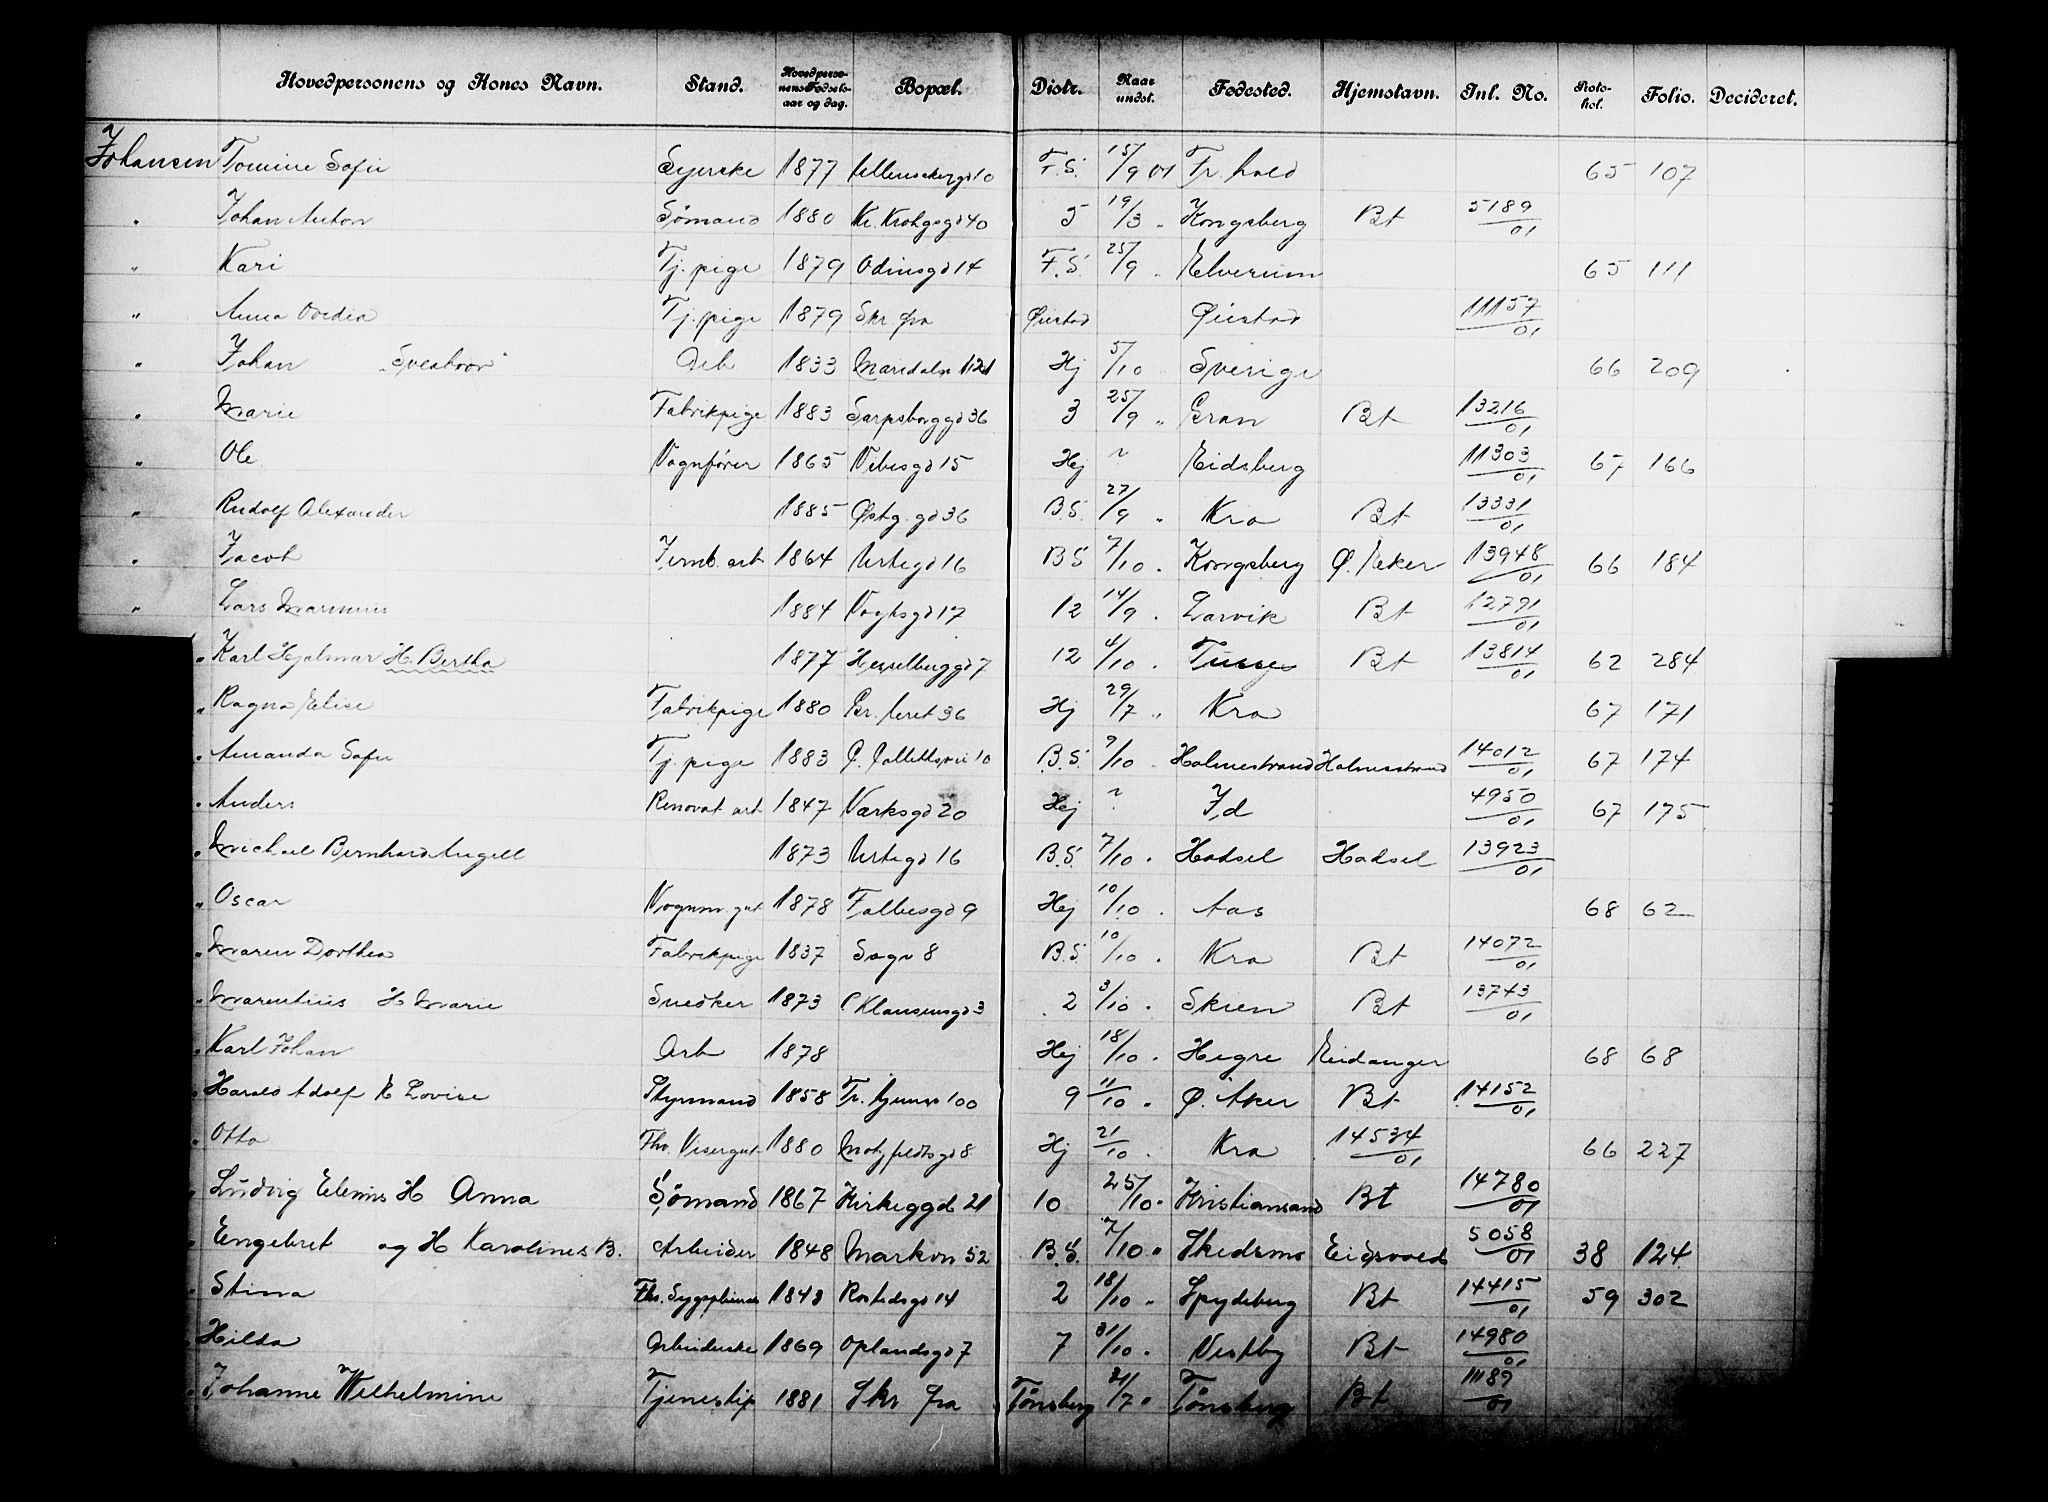 Hovedpersonens og Kones Navn. Stand. Hovedpersonens Fødselsaar og dag. Bopæl. Distr. Naar undst. Fødested. Hjemstavn. Inl. No. Protokol. Folio. Decideret.
Johansen Tomine Sofie Syerske 1877 Ullensakergd 10 F.S. 15/9 01 Fr.hald 65 107
" Johan Anton Sømand 1880 Kr. Krohgsgd 40 5 19/3 " Kongsberg Bt 5189/01
" Kari Tj. pige 1879 Odinsgd 14 F.S. 25/9 " Elverum 65 111
" Anna Tj. pige 1879 Skr fra Øiestad Øiestad 11157/01
" Johan Arb 1833 Maridalsv 121 Hj 5/10 Sverige 66 209
" Marie Fabrikpige 1883 Sarpsborggd 36 3 25/9 " Gran Bt 13216/01
" Ole Vognfører 1865 Vibesgd 15 Hej ? Eidsberg 11303/01 67 166
" Rudolf Alexander 1885 Østg. gd 36 B.S. 27/9 " Kra Bt 13331/01
" Jacob Jernb. arb 1864 Urtegd 16 B S 7/10 " Kongsberg Ø. Aker 13948/01 66 184
" Lars Marinius 1884 Vogtsgd 17 12 14/9 " Larvik Bt 12791/01
" Karl Hjalmar H. Bertha 1877 Hesselberggd 7 12 4/10 " Bt 13814/01 62 284
" Ragna Elise Fabrikpige 1880 Gr. leret 36 Hj 29/7 " Kra 67 171
" Amanda Sofie Tj. pige 1883 C. Collettsvei 10 B.S. 9/10 " Holmestrand Holmestrand 14012/01 67 174
" Anders Renovat. arb 1847 Verksgd 20 Hej ? Id 4950/01 67 175
" Michael Bernhard Angell 1873 Urtegd 16 B.S. 7/10 " Hadsel Hadsel 13923/01
" Oscar Vognm. gut 1878 Falbesgd 9 Hej 10/10 " Aas 68 62
" Maren Dorthea Fabrikpige 1837 Sagv 8 B.S. 10/10 " Kra Bt 14072/01
" Marentius H Marie Snedker 1873 Klausensgd 3 2 3/10 " Skien Bt 13743/01
" Karl Johan Arb 1878 Hej 18/10 " Hegre Eidanger 68 68
" Harald Adolf H Lovise Styrmand 1858 Tr. hjemsv 100 9 11/10 " Ø. Aker Bt 14152/01
" Otto Fhv. Visergut 1880 Motzfeldtsgd 8 Hj 21/10 " Kra 14534/01 66 227
" Ludvig H Anna Sømand 1867 Kirkeggd 21 10 25/10 " Kristiansand Bt 14780/01
" Engebret og H Karolines B. Arbeider 1848 Markvn 52 B.S. 7/10 " Skedsmo Eidsvold 5058/01 38 124
" Stina Fhv. Sygepleierske 1843 Rostedsgd 14 2 18/10 " Spydeberg Bt 14415/01 59 302
" Hilda Arbeiderske 1869 Oplandsgd 7 7 31/10 " Vestby Bt 14980/01
" Johanne Wilhelmine Tjenestep 1881 Skr fra Tønsberg 31/7 " Tønsberg Bt 11189/01